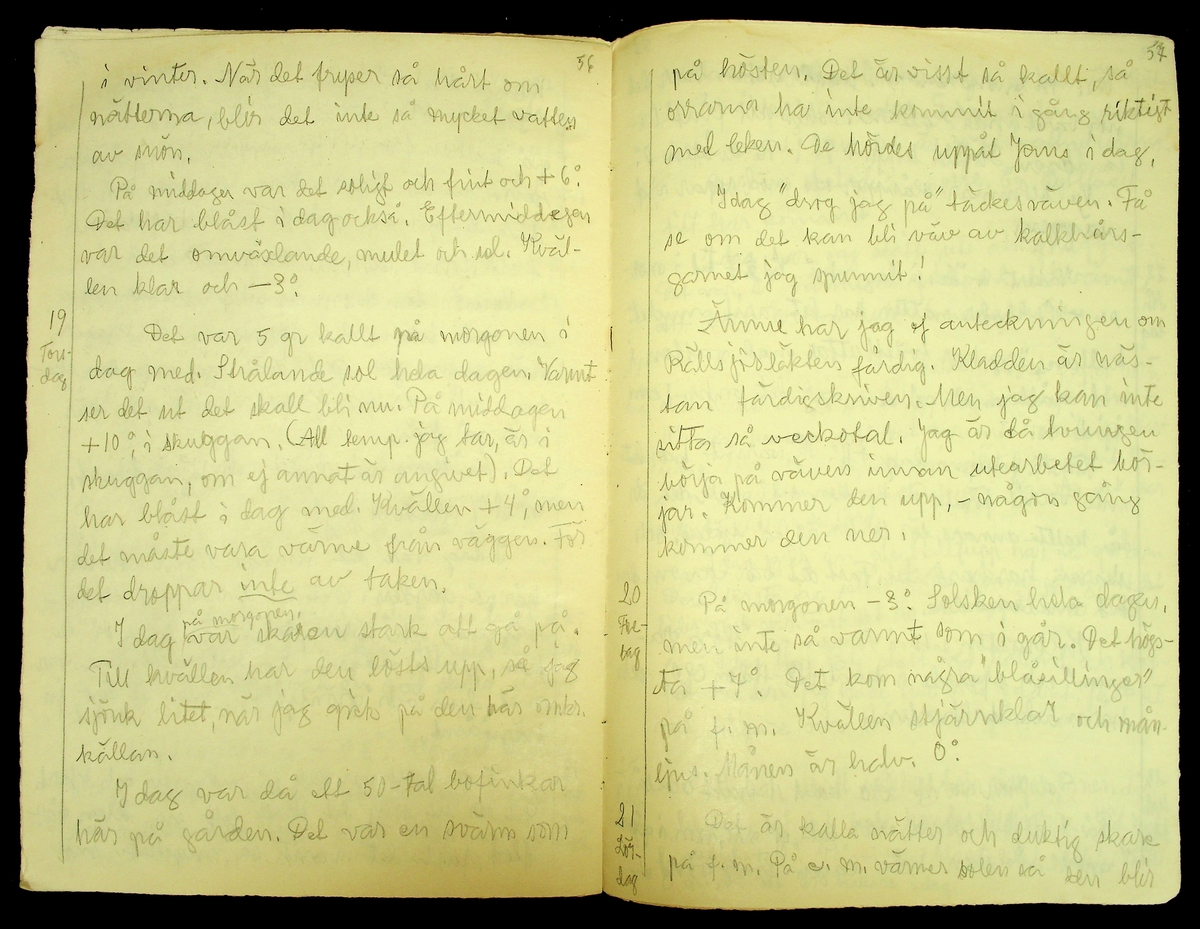 56
i vinter. När det fryser så hårt om
nätterna, blir det inte så mycket vatten
av snön.
På middagen var det soligt och fint och +6°.
Det har blåst i dag också. Eftermiddagen
var det omväxlande, mulet och sol. Kväl-
len klar och -3°.
19
Tors-
dag
Det var 5 gr kallt på morgonen i
dag med. Strålande sol hela dagen. Varmt
ser det ut det skall bli nu. På middagen
+10°, i skuggan. (All temp. jag tar, är i
skuggan, om ej annat är angivet). Det
har blåst i dag med. Kvällen +4°, men
det måste vara värme från väggen. För
det droppar inte av taken.
på morgonen
I dag var skaren stark att gå på.
Till kvällen har den lösts upp, så jag
sjönk litet, när jag gick på den här
källan.
I dag var då ett 50-tal bofinkar
här på gården. Det var en svärm som
57
på hösten. Det är visst så kallt, så
orrarna har inte kommit i gång riktigt
med leken. De hördes uppåt Jons i dag.
I dag "drog jag på" täckesväven. Få
se om det kan bli väv av kalkhårs-
garnet jag spunnit!
Ännu har jag ej anteckningen om
Rällsjösläkten färdig. Kladden är näs-
tan färdigskriven. Men jag kan inte
sitta så veckotal. Jag är då tvungen
börja på väven innan utearbetet bör-
jar. Kommer den upp, - någon gång
kommer den ner.
20
Fre-
dag
På morgonen -3°. Solsken hela dagen,
men inte så varmt som i går. Det högs-
ta +7°. Det kom några "blåsillinger"
på f. m. Kvällen stjärnklar och mån-
ljus. Månen är halv. 0°.
21
Lör-
dag
Det är kalla nätter och duktig skare
på f. m. På e. m. värmer solen så den blir